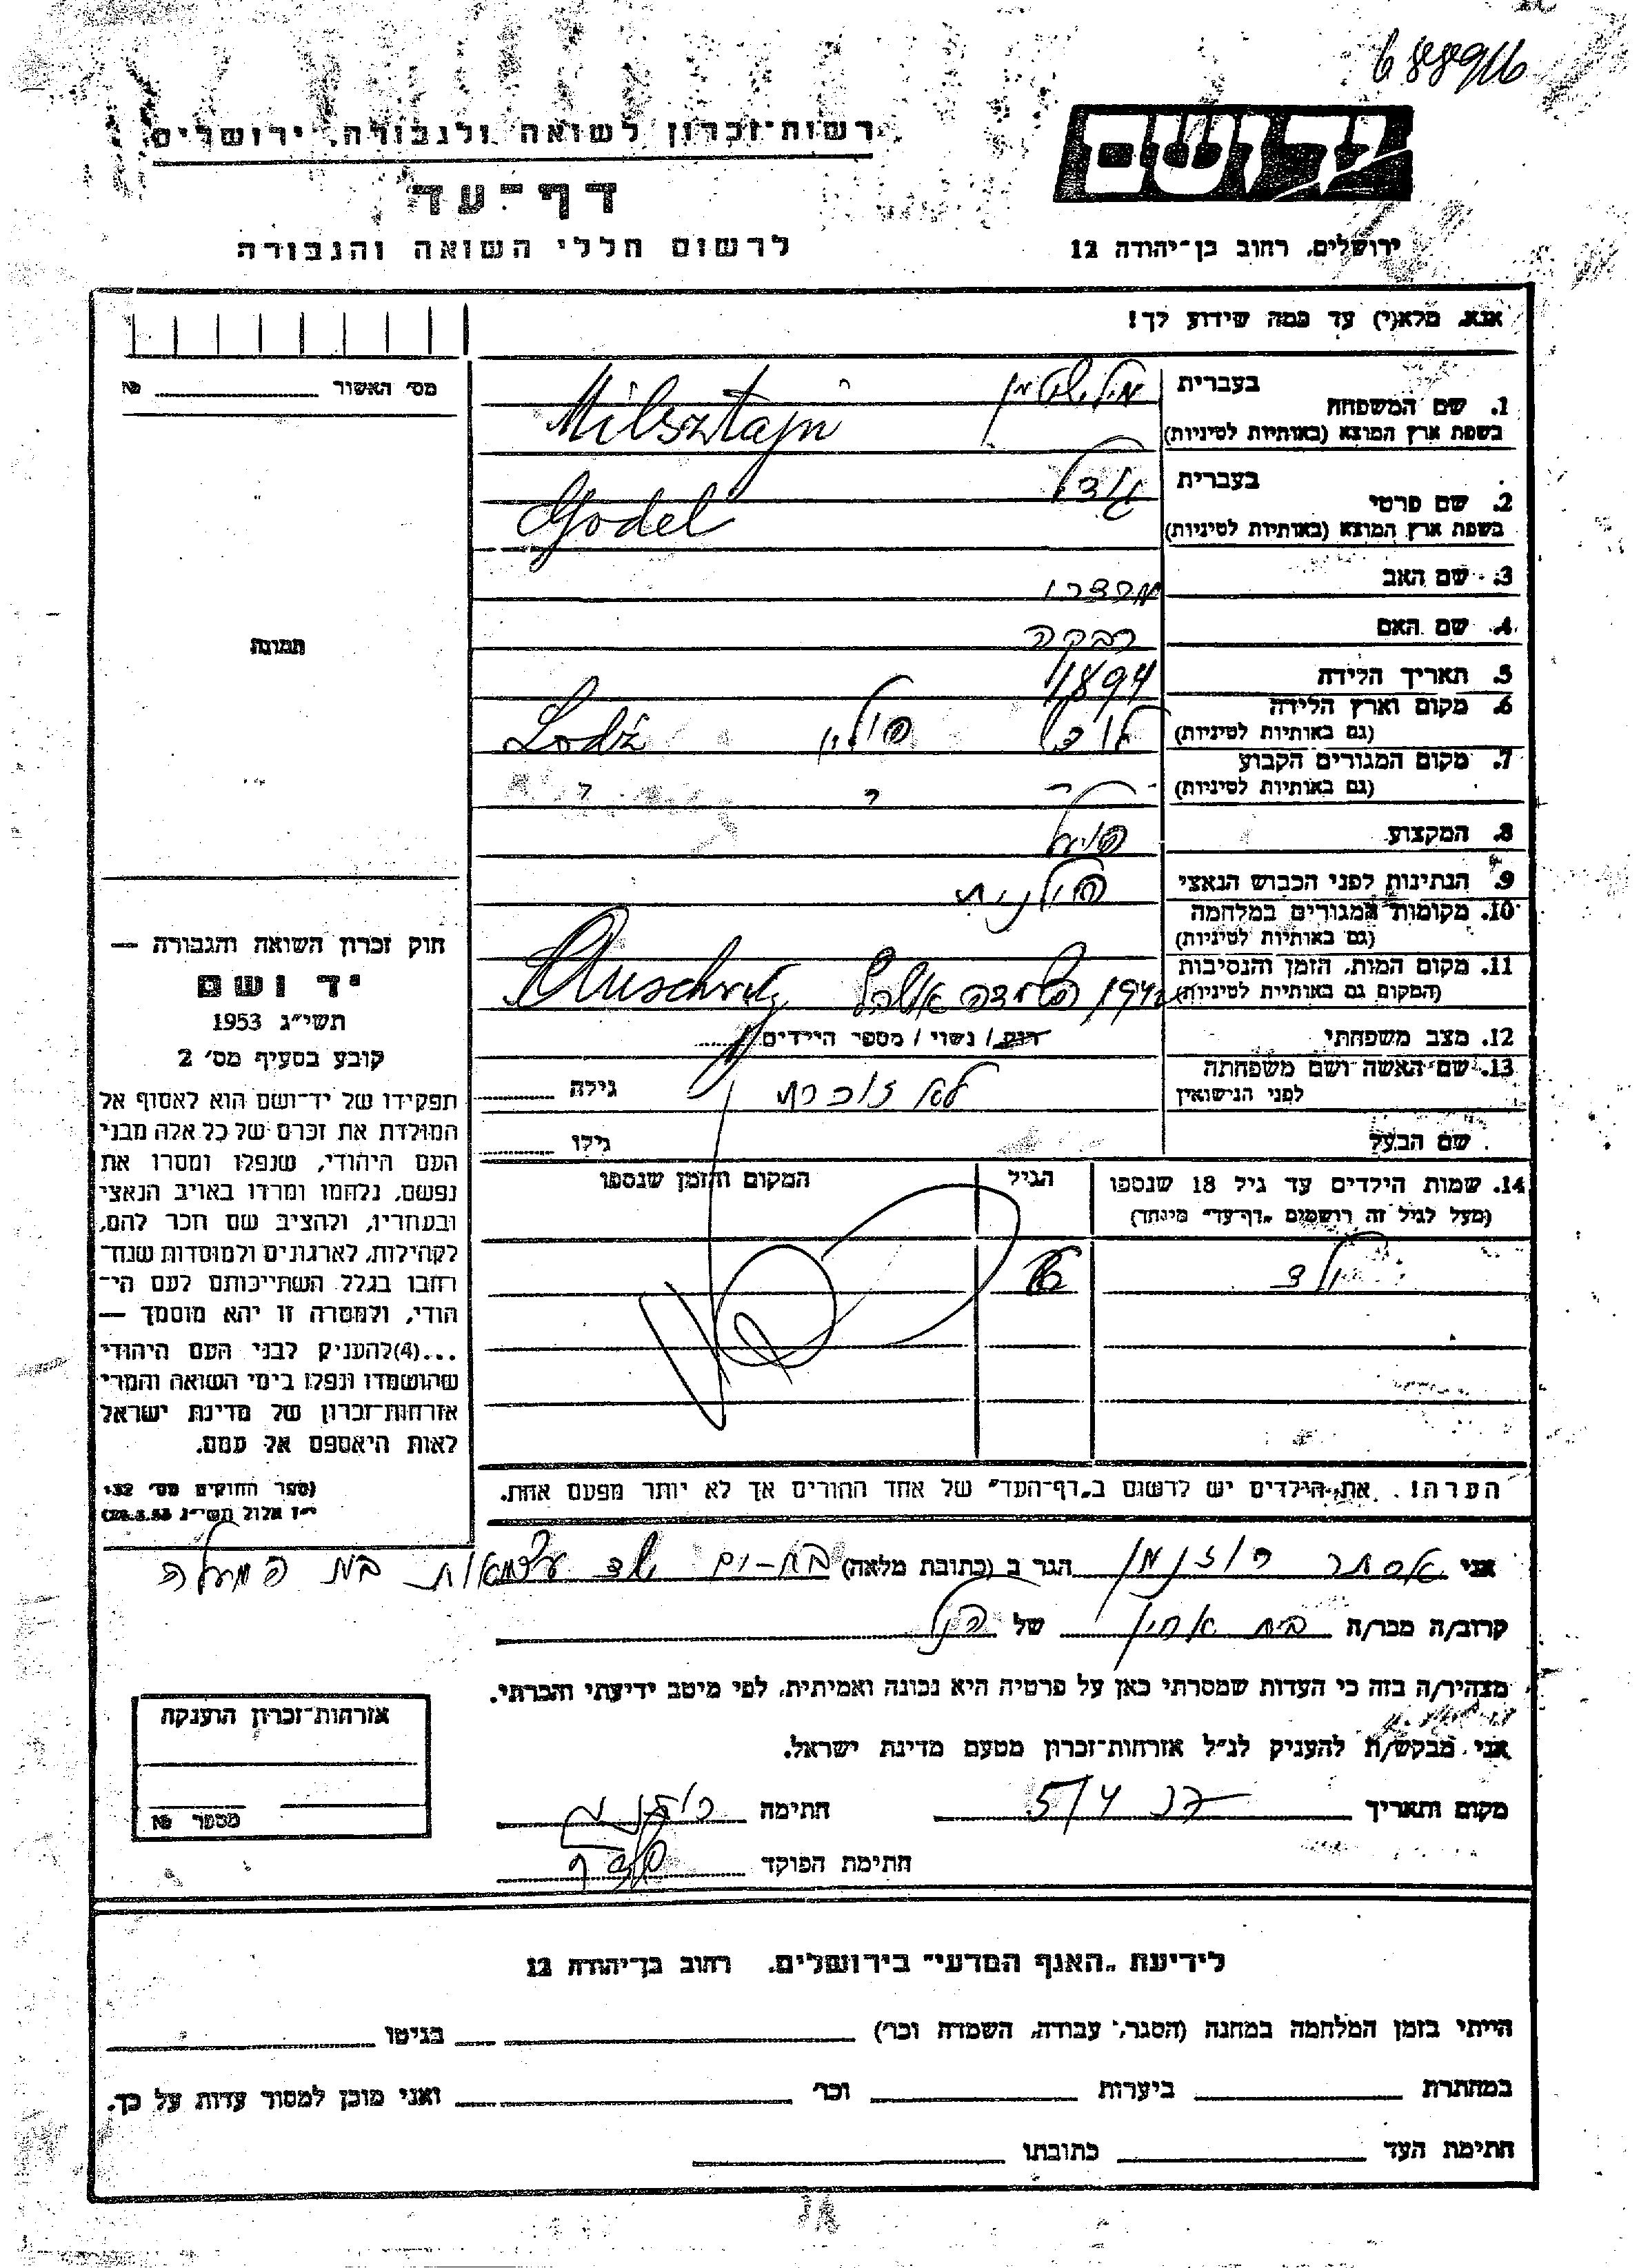 יד ושם
רשות-זכרון לשואה ולגבורה, ירושלים
דף-עד
לרשום חללי השואה והגבורה
ירושלים, רחוב בן-יהודה 12
אנא, מלא(י) עד כמה שידוע לך!
מס' האשור № 
1. שם המשפחה בעברית
בשפת ארץ המוצא (באותיות לטיניות) Milsztajn
2. שם פרטי בעברית גודל
בשפת ארץ המוצא (באותיות לטיניות) Godel
3. שם האב
4. שם האם רבקה
תמונה
5. תאריך הלידה 1894
6. מקום וארץ הלידה
(גם באותיות לטיניות) לודז' פולין Lodź
7. מקום המגורים הקבוע
(גם באותיות לטיניות)
8. המקצוע פועל
9. הנתינות לפני הכבוש הנאצי פולנית
10. מקומות המגורים במלחמה
(גם באותיות לטיניות)
11. מקום המות, הזמן והנסיבות
(המקום גם באותיות לטיניות) Auschwitz
12. מצב משפחתי רווק / נשוי / מספר הילדים
13. שם האשה ושם משפחתה
לפני הנישואין לא זוכרת גילה
שם הבעל גילו
14. שמות הילדים עד גיל 18 שנספו הגיל המקום והזמן שנספו
(מעל לגיל זה רושמים "דף-עד" מיוחד)
ילד
הערה! את הילדים יש לרשום ב"דף-העד" של אחד ההורים אך לא יותר מפעם אחת.
חוק זכרון השואה והגבורה —
יד ושם
תשי"ג 1953
קובע בסעיף מס' 2
תפקידו של יד-ושם הוא לאסוף אל
המולדת את זכרם של כל אלה מבני
העם היהודי, שנפלו ומסרו את
נפשם, נלחמו ומרדו באויב הנאצי
ובעוזריו, ולהציב שם וזכר להם,
לקהילות, לארגונים ולמוסדות שנח-
רבו בגלל השתייכותם לעם הי-
הודי, ולמטרה זו יהא מוסמך —
...(4) להעניק לבני העם היהודי
שהושמדו ונפלו בימי השואה והמרי
אזרחות-זכרון של מדינת ישראל
לאות היאספם אל עמם.
(ספר החוקים מס' 132
י"ז אלול תשי"ג 28.8.53)
אני אסתר רוזנמן הגר ב (כתובת מלאה) בת-ים
קרוב/ה מכר/ה בת אחיו של הנ"ל
מצהיר/ה בזה כי העדות שמסרתי כאן על פרטיה היא נכונה ואמיתית, לפי מיטב ידיעתי והכרתי.
אני מבקש/ת להעניק לנ"ל אזרחות-זכרון מטעם מדינת ישראל.
מקום ותאריך 5/4 חתימה
חתימת הפוקד
אזרחות-זכרון הוענקה
מספר №
לידיעת "האגף המדעי" בירושלים, רחוב בן-יהודה 12
הייתי בזמן המלחמה במחנה (הסגר, עבודה, השמדה וכו') בגיטו
במחתרת ביערות וכו' ואני מוכן למסור עדות על כך.
חתימת העד כתובתו